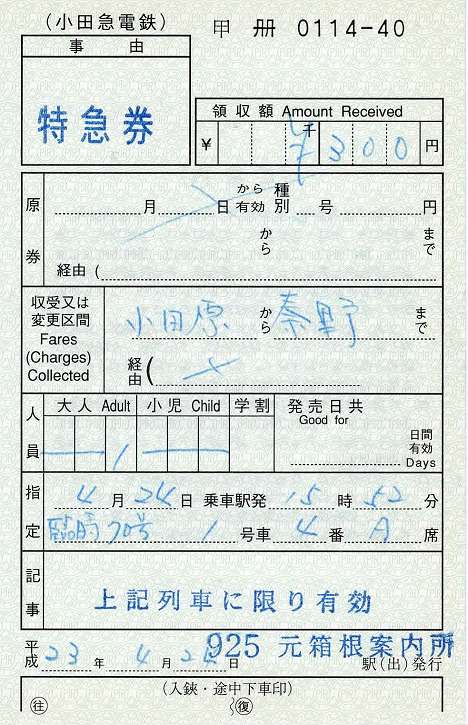 (小田急電鉄)
甲 冊 0114-40
事 由
特急券
領収額 Amount Received
千
¥ ¥300 円
原券
月 日 から有効 種別 号 円
から まで
経由 (
収受又は
変更区間
Fares
(Charges)
Collected
小田原 から 秦野 まで
経由 (
人員
大人 Adult 小児 Child 学割
1
発売日共
Good for
日間
有効
Days
指定
4月24日 乗車駅発 15時52分
臨時70号 1号車 4番 A席
記事
上記列車に限り有効
925 元箱根案内所
平成23年 4月24日 駅(出)発行
(入鋏・途中下車印)
往 復